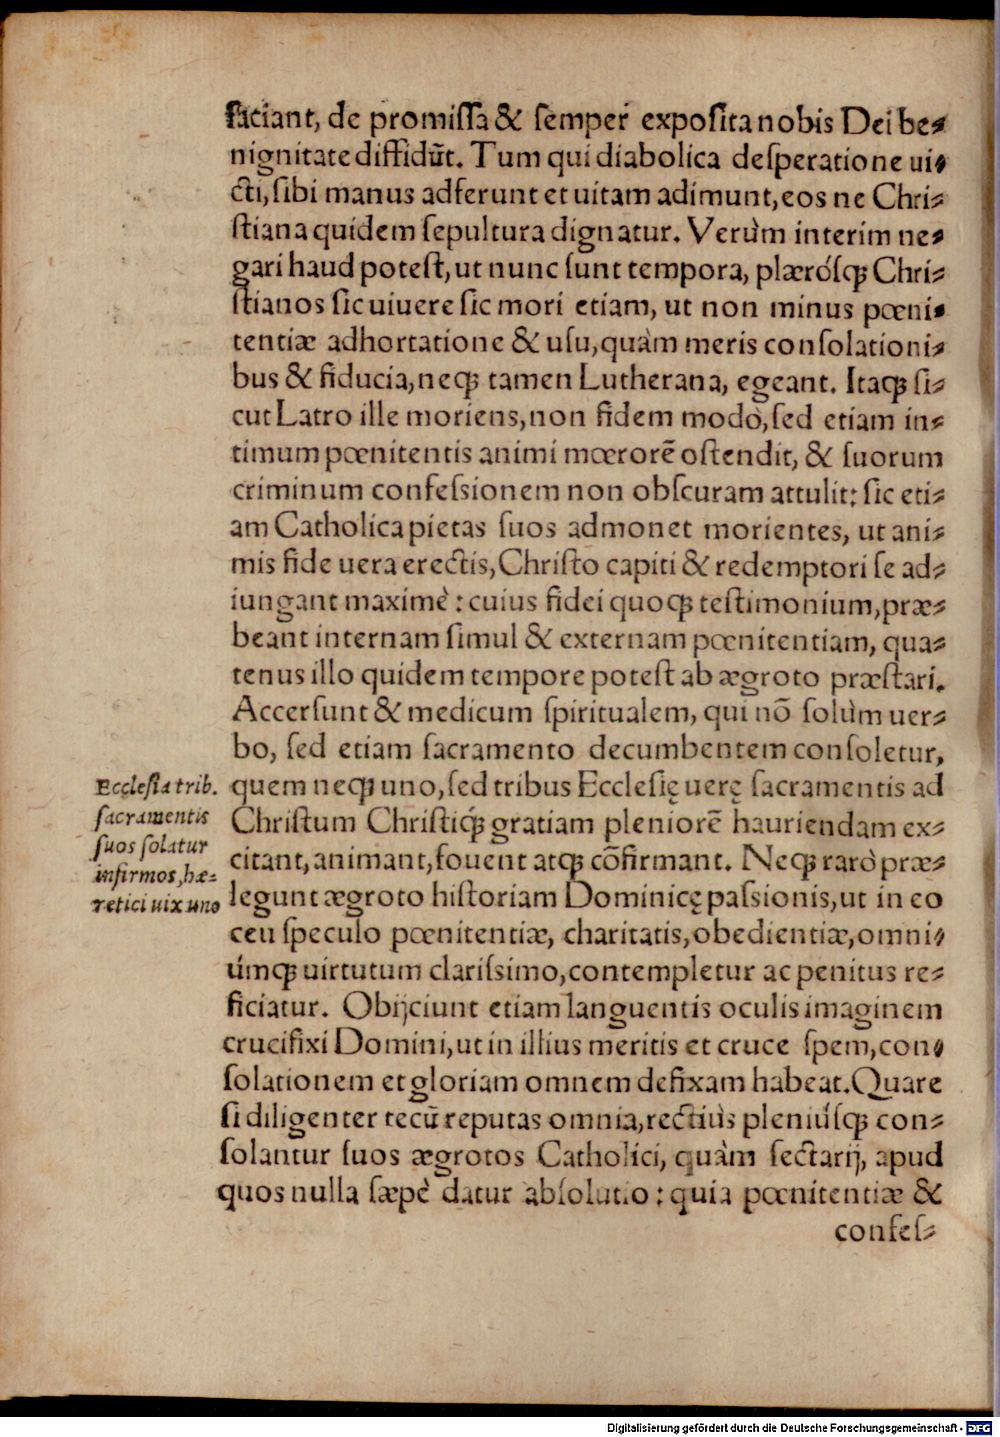 faciant, de promiſſa & ſemper expoſita nobis Dei be-
nignitate diffidūt. Tum qui diabolica deſperatione ui-
cti, ſibi manus adferunt et uitam adimunt, eos ne Chri-
ſtiana quidem ſepultura dignatur. Verùm interim ne-
gari haud poteſt, ut nunc ſunt tempora, plæróſq; Chri-
ſtianos ſic uiuere ſic mori etiam, ut non minus pœni-
tentiæ adhortatione & uſu, quàm meris conſolationi-
bus & fiducia, neq; tamen Lutherana, egeant. Itaq; ſi-
cut Latro ille moriens, non fidem modò, ſed etiam in-
timum pœnitentis animi mœrorē oſtendit, & ſuorum
criminum confeſsionem non obſcuram attulit: ſic eti-
am Catholica pietas ſuos admonet morientes, ut ani-
mis fide uera erectis, Chriſto capiti & redemptori ſe ad-
iungant maximè: cuius fidei quoq; teſtimonium, præ-
beant internam ſimul & externam pœnitentiam, qua-
tenus illo quidem tempore poteſt ab ægroto præſtari.
Accerſunt & medicum ſpiritualem, qui nō ſolùm uer-
bo, ſed etiam ſacramento decumbentem conſoletur,
quem neq; uno, ſed tribus Eccleſię uerę ſacramentis ad
Chriſtum Chriſtiq́; gratiam pleniorē hauriendam ex-
citant, animant, fouent atq; cōfirmant. Neq; rarò præ-
legunt ægroto hiſtoriam Dominicę paſsionis, ut in eo
ceu ſpeculo pœnitentiæ, charitatis, obedientiæ, omni-
úmq; uirtutum clariſsimo, contempletur ac penitus re-
ficiatur. Obijciunt etiam languentis oculis imaginem
crucifixi Domini, ut in illius meritis et cruce ſpem, con-
ſolationem et gloriam omnem defixam habeat. Quare
ſi diligenter tecū reputas omnia, rectiùs pleniúſq; con-
ſolantur ſuos ægrotos Catholici, quàm ſectarij, apud
quos nulla ſæpè datur abſolutio: quia pœnitentiæ &
confeſ-
Eccleſia trib.
ſacramentis
ſuos ſolatur
infirmos, hæ-
retici uix uno
Digitalisierung gefördert durch die Deutsche Forschungsgemeinschaft - DFG